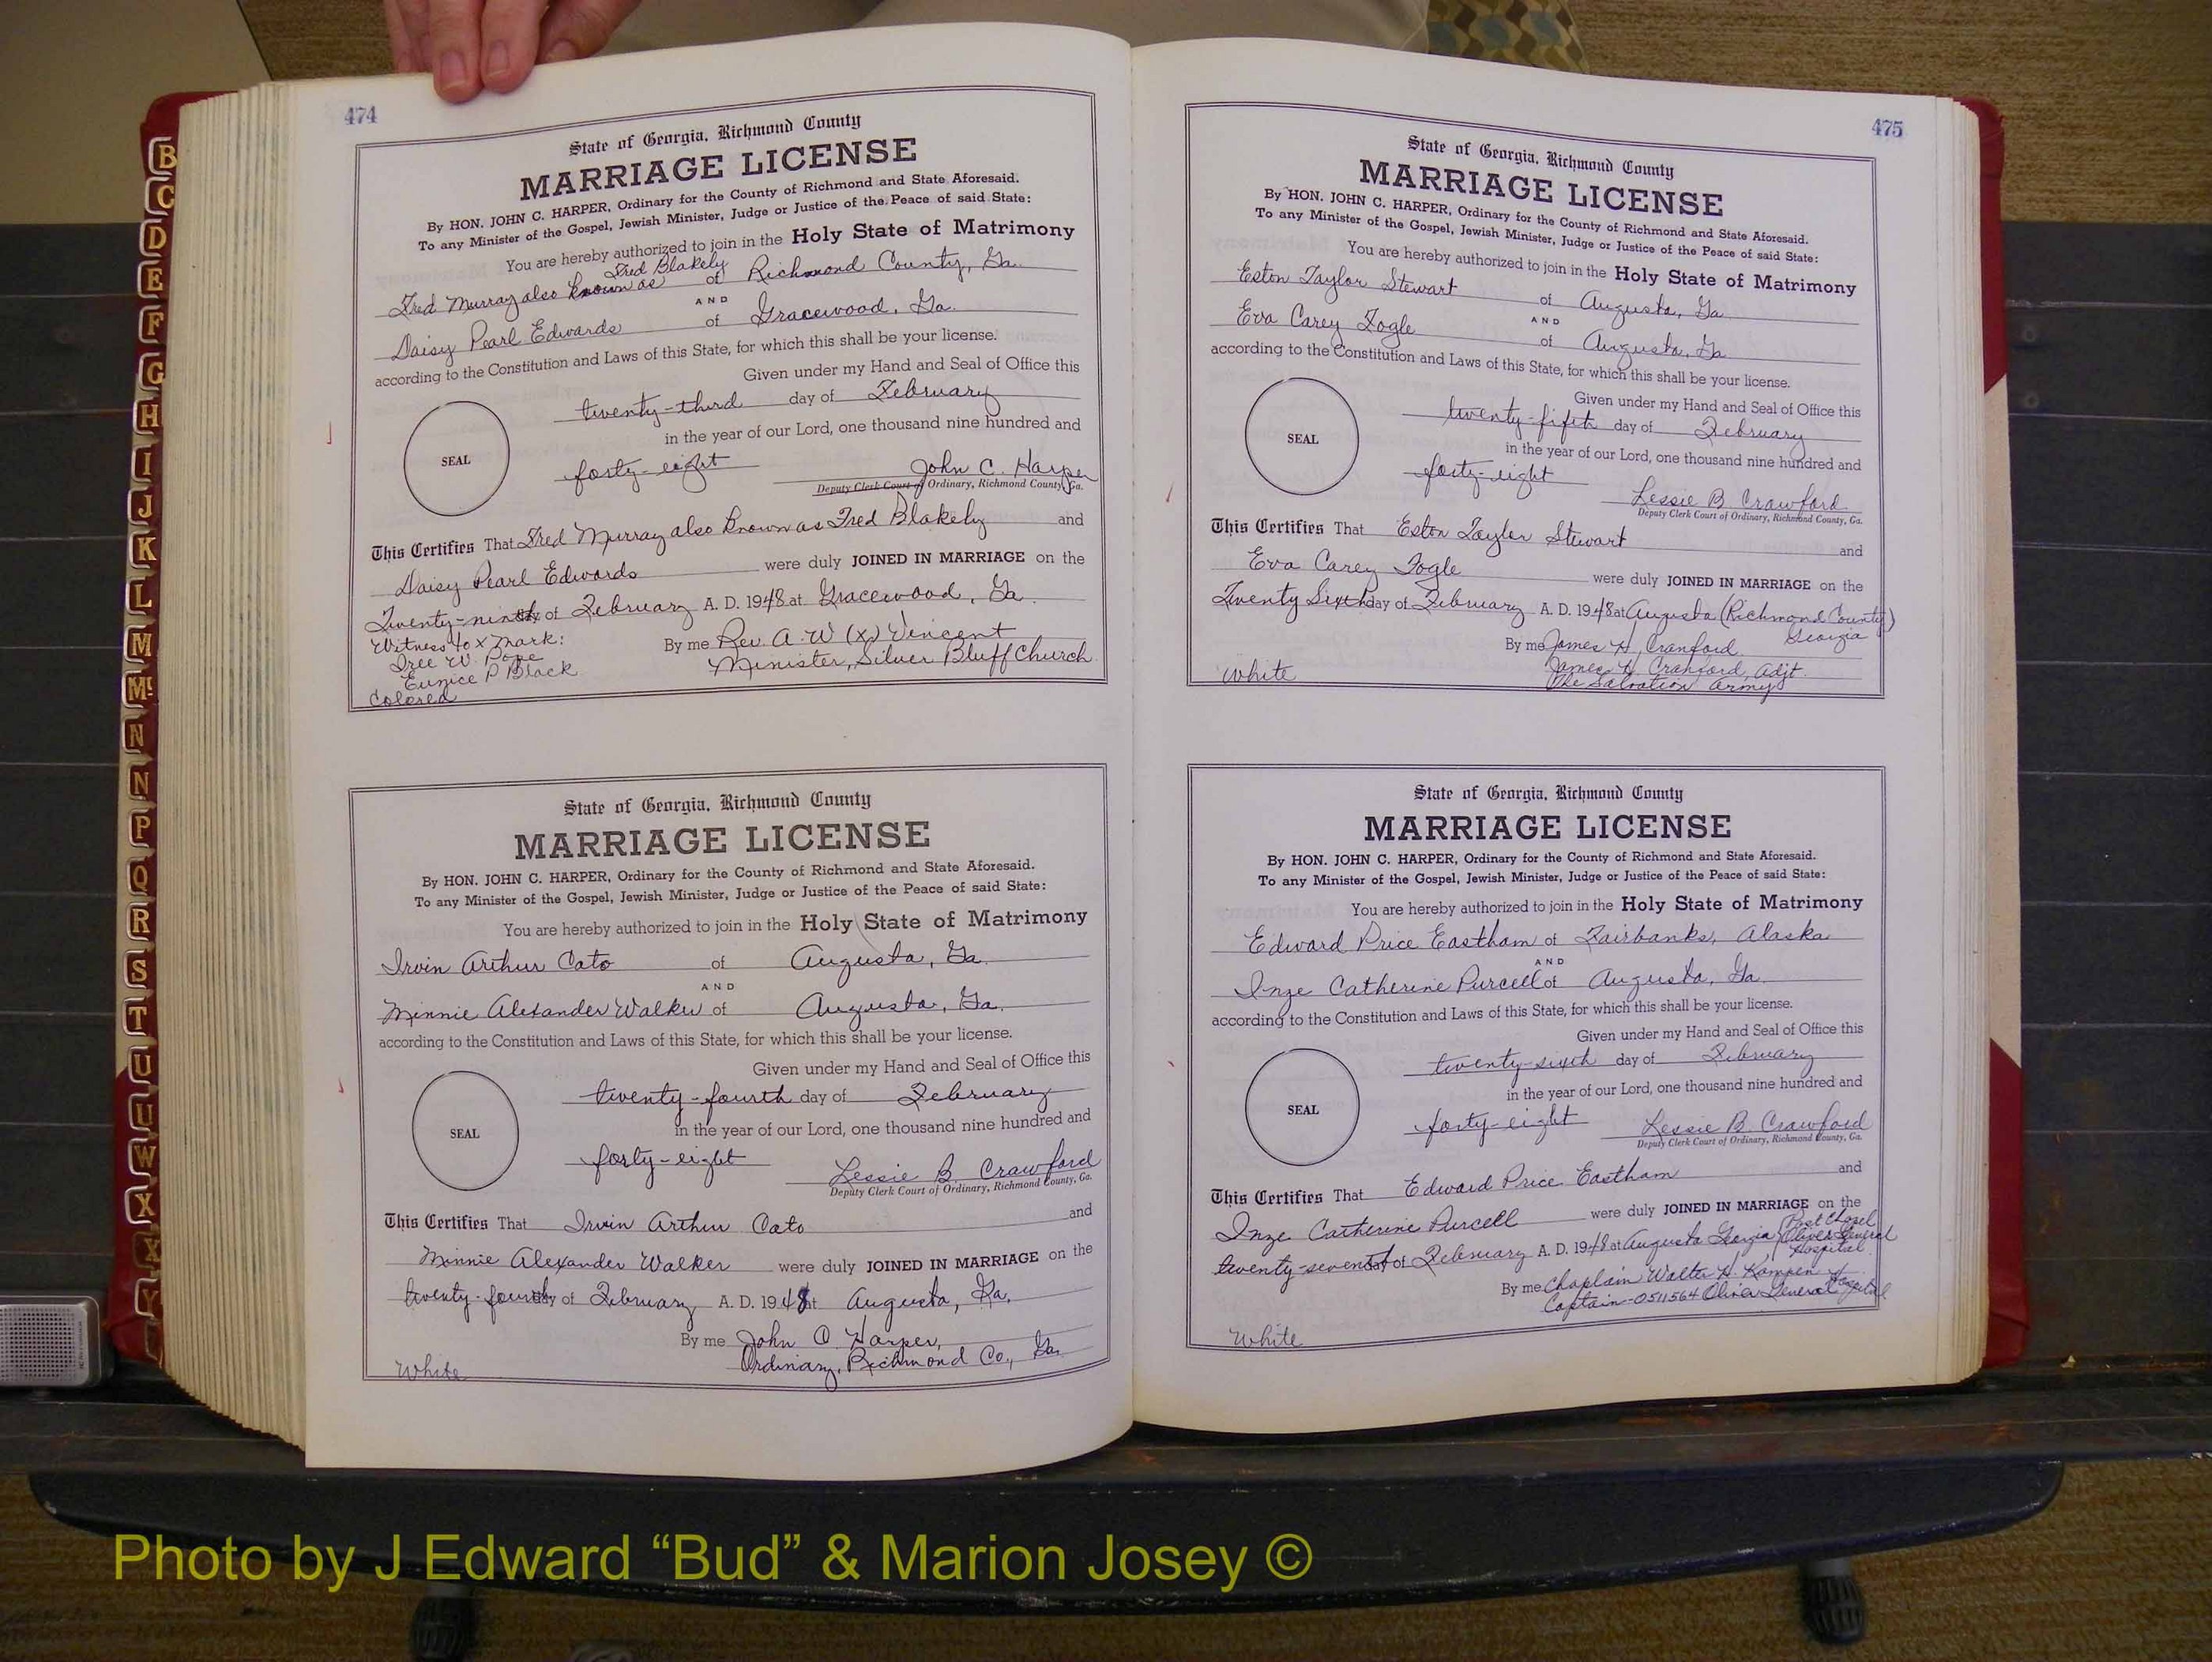 474
State of Georgia, Richmond County
MARRIAGE LICENSE
By HON. JOHN C. HARPER, Ordinary for the County of Richmond and State Aforesaid.
To any Minister of the Gospel, Jewish Minister, Judge or Justice of the Peace of said State:
You are hereby authorized to join in the Holy State of Matrimony
Fred Blakely
Fred Murray also known as of Richmond County, Ga.
AND
Daisy Pearl Edwards of Gracewood, Ga.
according to the Constitution and Laws of this State, for which this shall be your license.
Given under my Hand and Seal of Office this
twenty-third day of February
in the year of our Lord, one thousand nine hundred and
SEAL
forty-eight John C. Harper
Deputy Clerk Court of Ordinary, Richmond County, Ga.
This Certifies That Fred Murray also known as Fred Blakely and
Daisy Pearl Edwards were duly JOINED IN MARRIAGE on the
Twenty-ninth day of February A. D. 1948 at Gracewood, Ga.
Witness to x Mark: By me Rev. A. W (x) Vincent
Iree W. Pope Minister, Silver Bluff Church
Eunice P Black
Colored
State of Georgia, Richmond County
MARRIAGE LICENSE
By HON. JOHN C. HARPER, Ordinary for the County of Richmond and State Aforesaid.
To any Minister of the Gospel, Jewish Minister, Judge or Justice of the Peace of said State:
You are hereby authorized to join in the Holy State of Matrimony
Irvin Arthur Cato of Augusta, Ga.
AND
Minnie Alexander Walker of Augusta, Ga.
according to the Constitution and Laws of this State, for which this shall be your license.
Given under my Hand and Seal of Office this
twenty-fourth day of February
in the year of our Lord, one thousand nine hundred and
SEAL
forty-eight Lessie B. Crawford
Deputy Clerk Court of Ordinary, Richmond County, Ga.
This Certifies That Irvin Arthur Cato and
Minnie Alexander Walker were duly JOINED IN MARRIAGE on the
twenty-fourth day of February A. D. 1948 at Augusta, Ga.
By me John C Harper,
Ordinary, Richmond Co., Ga.
White
475
State of Georgia, Richmond County
MARRIAGE LICENSE
By HON. JOHN C. HARPER, Ordinary for the County of Richmond and State Aforesaid.
To any Minister of the Gospel, Jewish Minister, Judge or Justice of the Peace of said State:
You are hereby authorized to join in the Holy State of Matrimony
Eston Taylor Stewart of Augusta, Ga
AND
Eva Carey Fogle of Augusta, Ga
according to the Constitution and Laws of this State, for which this shall be your license.
Given under my Hand and Seal of Office this
twenty-fifth day of February
in the year of our Lord, one thousand nine hundred and
SEAL
forty-eight Lessie B. Crawford
Deputy Clerk Court of Ordinary, Richmond County, Ga.
This Certifies That Eston Taylor Stewart and
Eva Carey Fogle were duly JOINED IN MARRIAGE on the
Twenty Sixth day of February A. D. 1948 at Augusta (Richmond County)
Georgia
By me James H. Cranford
James H. Cranford, Adjt.
The Salvation Army
White
State of Georgia, Richmond County
MARRIAGE LICENSE
By HON. JOHN C. HARPER, Ordinary for the County of Richmond and State Aforesaid.
To any Minister of the Gospel, Jewish Minister, Judge or Justice of the Peace of said State:
You are hereby authorized to join in the Holy State of Matrimony
Edward Price Eastham of Fairbanks, Alaska
AND
Inze Catherine Purcell of Augusta, Ga.
according to the Constitution and Laws of this State, for which this shall be your license.
Given under my Hand and Seal of Office this
twenty-sixth day of February
in the year of our Lord, one thousand nine hundred and
SEAL
forty-eight Lessie B. Crawford
Deputy Clerk Court of Ordinary, Richmond County, Ga.
This Certifies That Edward Price Eastham and
Inze Catherine Purcell were duly JOINED IN MARRIAGE on the
twenty-seventh day of February A. D. 1948 at Augusta Georgia (Post Chapel
Oliver General
Hospital
By me Chaplain Walter H. Kampen
Captain-0511564 Oliver General Hospital
White
B
C
D
E
F
G
H
I
J
K
L
M
Mc
N
N
P
Q
R
S
T
U
U
W
X
X
Y
Photo by J Edward “Bud” & Marion Josey ©